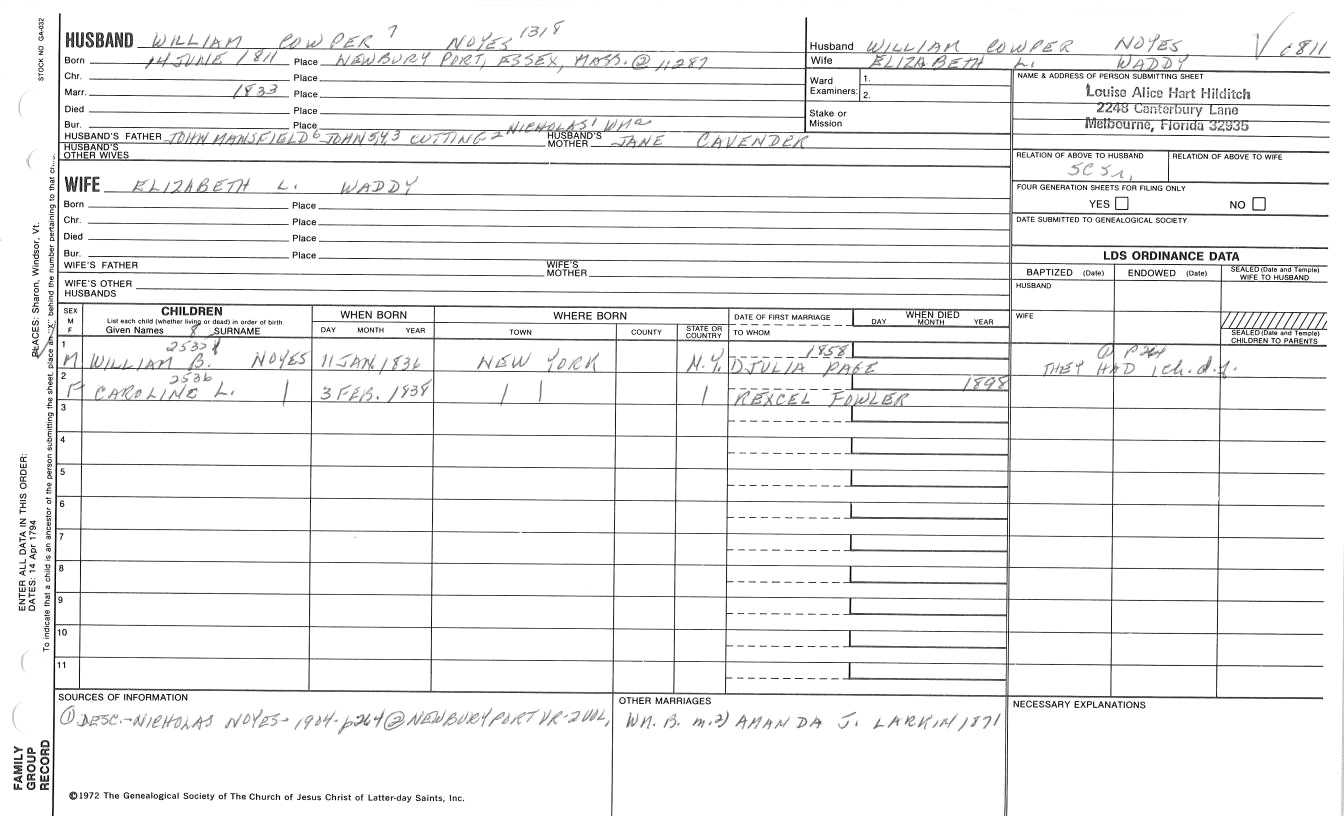 STOCK NO. GA-032
HUSBAND WILLIAM COWPER 7 NOYES 1318
Born 14 JUNE 1811 Place NEWBURY PORT, ESSEX, MASS. @ 11287
Chr. Place
Marr. 1833 Place
Died Place
Bur. Place
HUSBAND'S FATHER JOHN MANSFIELD 6 JOHN 5,4,3 CUTTING 2 NICHOLAS 1 WM a HUSBAND'S MOTHER JANE CAVENDER
HUSBAND'S OTHER WIVES
Husband WILLIAM COWPER NOYES √ c811
Wife ELIZABETH L. WADDY
Ward Examiners: 1.
2.
Stake or Mission
NAME & ADDRESS OF PERSON SUBMITTING SHEET
Louise Alice Hart Hilditch
2248 Canterbury Lane
Melbourne, Florida 32935
RELATION OF ABOVE TO HUSBAND RELATION OF ABOVE TO WIFE
5C 5r,
FOUR GENERATION SHEETS FOR FILING ONLY
YES NO
DATE SUBMITTED TO GENEALOGICAL SOCIETY
WIFE ELIZABETH L. WADDY
Born Place
Chr. Place
Died Place
Bur. Place
WIFE'S FATHER WIFE'S MOTHER
WIFE'S OTHER HUSBANDS
LDS ORDINANCE DATA
BAPTIZED (Date) ENDOWED (Date) SEALED (Date and Temple) WIFE TO HUSBAND
HUSBAND
WIFE
SEALED (Date and Temple) CHILDREN TO PARENTS
SEX M F CHILDREN WHEN BORN WHERE BORN DATE OF FIRST MARRIAGE WHEN DIED
List each child (whether living or dead) in order of birth
Given Names 8 SURNAME DAY MONTH YEAR TOWN COUNTY STATE OR COUNTRY TO WHOM DAY MONTH YEAR
1 2535 1858 ① P264
M WILLIAM B. NOYES 11 JAN. 1836 NEW YORK N.Y. D JULIA PAGE THEY HAD 1 ch. d.y.
2 2536 1898
F CAROLINE L. | 3 FEB. 1838 | | | REXCEL FOWLER
3
4
5
6
7
8
9
10
11
SOURCES OF INFORMATION
① DESC.-NICHOLAS NOYES-1904-p264 @ NEWBURYPORT VR-2 VOL,
OTHER MARRIAGES
WM. B. m. 2) AMANDA J. LARKIN 1871
NECESSARY EXPLANATIONS
©1972 The Genealogical Society of The Church of Jesus Christ of Latter-day Saints, Inc.
FAMILY GROUP RECORD
ENTER ALL DATA IN THIS ORDER:
DATES: 14 Apr 1794
PLACES: Sharon, Windsor, Vt.
To indicate that a child is an ancestor of the person submitting the sheet, place an X behind the number pertaining to that